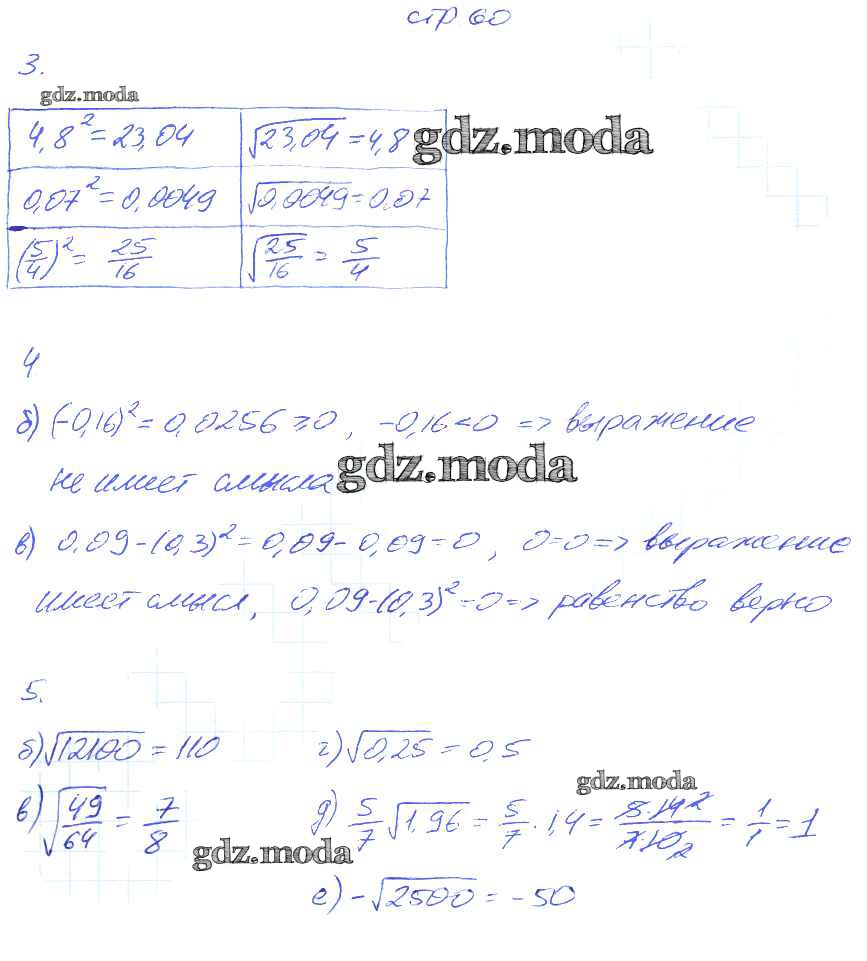 стр 60
3.
gdz.moda
4,8² = 23,04 √23,04 = 4,8
gdz.moda
0,07² = 0,0049 √0,0049 = 0,07
(5/4)² = 25/16 √25/16 = 5/4
4
б) (-0,16)² = 0,0256 ≥ 0, -0,16 < 0 => выражение
не имеет смысла
gdz.moda
в) 0,09-(0,3)² = 0,09-0,09=0, 0=0 => выражение
имеет смысл, 0,09-(0,3)²=0 => равенство верно
5.
б) √12100 = 110 г) √0,25 = 0,5
gdz.moda
в) √49/64 = 7/8 д) 5/7 √1,96 = 5/7 · 1,4 = 5·14 2/7·10 2 = 1/1 = 1
gdz.moda
е) -√2500 = -50